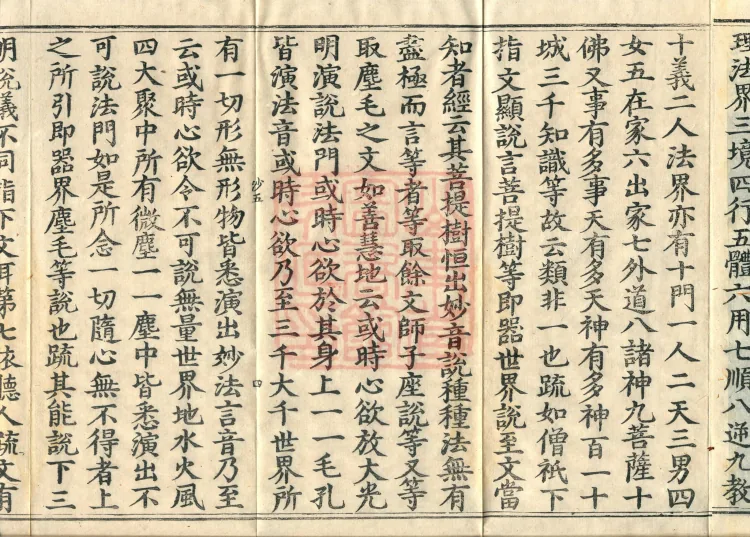 理法界三境四行五體六用七順八逆九教
十義二人法界亦有十門一人二天三男四
女五在家六出家七外道八諸神九菩薩十
佛又事有多事天有多天神有多神百一十
城三千知識等故云類非一也䟽如僧祇下
指文顯說言菩提樹等即器世界說至文當
知者經云其菩提樹恒出妙音說種種法無有
盡極而言等者等取餘文師子座說等又等
取塵毛之文如善慧地云或時心欲放大光
明演說法門或時心欲於其身上一一毛孔
皆演法音或時心欲乃至三千大千世界所
鈔五 四
有一切形無形物皆悉演出妙法言音乃至
云或時心欲令不可說無量世界地水火風
四大聚中所有微塵一一塵中皆悉演出不
可說法門如是所念一切隨心無不得者上
之所引即器界塵毛等說也䟽其能說下三
明說義不同指下文耳第七依聽人䟽文有